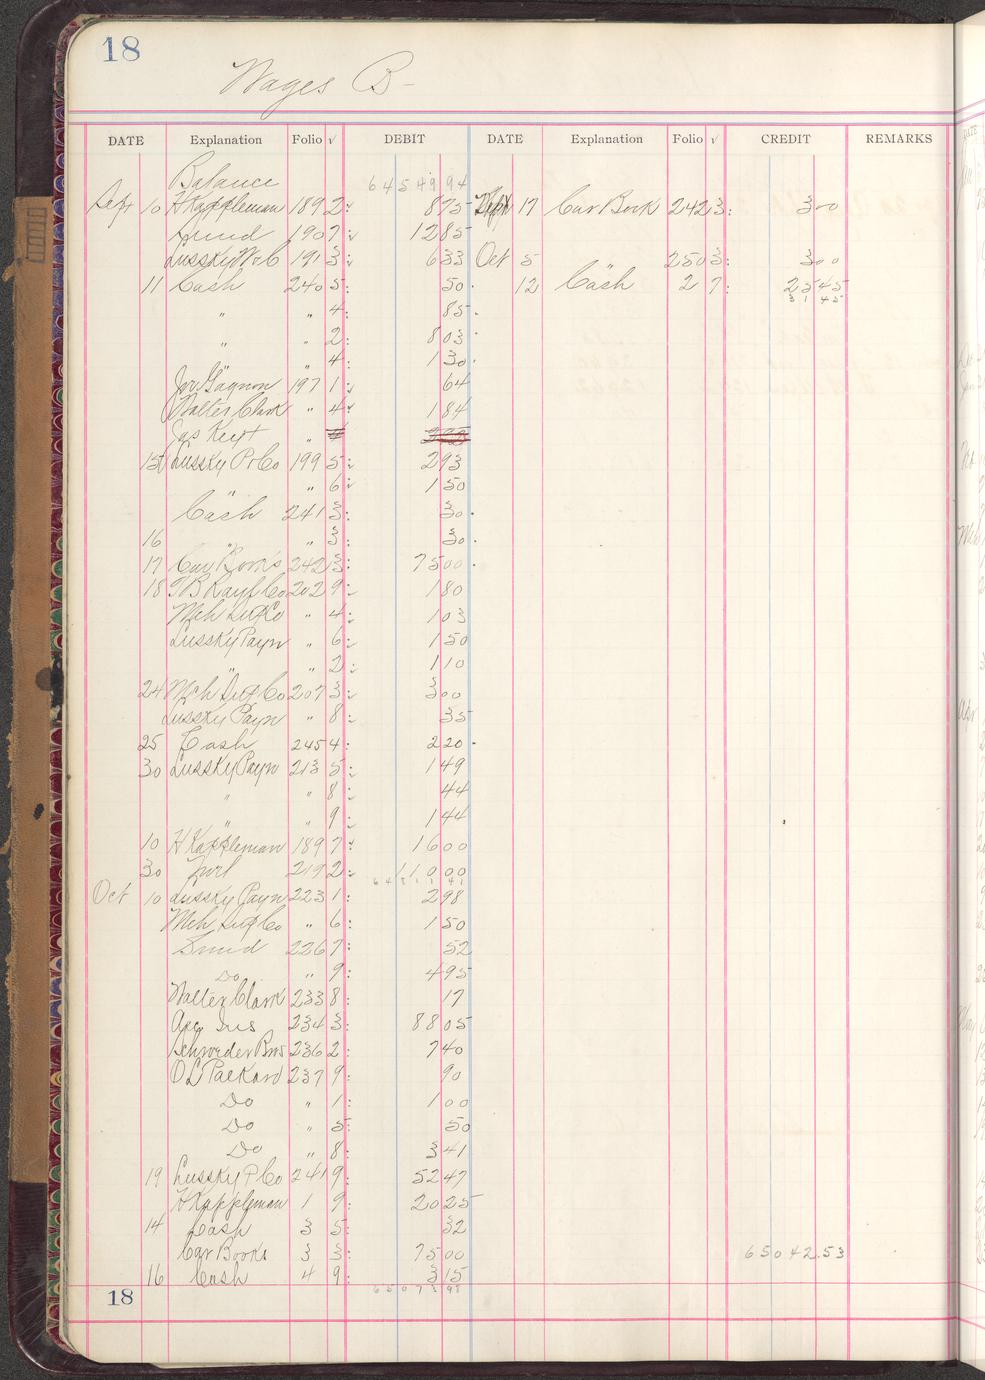 18
Wages B-
DATE Explanation Folio √ DEBIT DATE Explanation Folio √ CREDIT REMARKS
Balance 64549 94
Sept 10 H Kappleman 189 2 8 75 Sept 17 Car Book 242 3 3 00
190 7 12 85
Lussky W & C 191 3 6 33 Oct 5 250 3 3 00
11 Cash 240 5 50 12 Cash 2 7 25 45
" " 4 85 31 45
" " 2 8 03
" 4 1 30
Jos Gagnon 197 1 64
Walter Clark " 4 1 84
Jas Keyt "
15 Lussky P Co 199 5 2 93
" " 6 1 50
Cash 241 3 30
16 " " 3 30
17 Car Books 242 3 75 00
18 T B Rayl Co 202 9 1 80
Mch Sup Co " 4 1 03
Lussky Payn " 6 1 50
" " 2 1 10
24 Mch Sup Co 207 3 3 00
Lussky Payn " 8 35
25 Cash 245 4 2 20
30 Lussky Payn 213 5 1 49
" " 8 44
" " 9 1 44
10 H Kappleman 189 7 16 00
30 219 2 110 00
Oct 10 Lussky Payn 223 1 2 98
Mch Sup Co " 6 1 50
226 7 52
Do " 9 4 95
Walter Clark 233 8 17
Acc Ins 234 3 88 05
Schroeder Bros 236 2 7 40
O L Packard 237 9 90
Do " 1 1 00
Do " 5 50
Do " 8 3 41
19 Lussky P Co 241 9 52 47
H Kappleman 1 9 20 25
14 Cash 3 5 32
Car Books 3 3 75 00 65042.53
16 Cash 4 9 3 15
18 65073 98